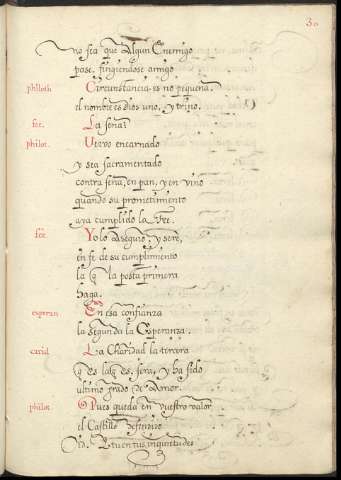 30
no sea que Algun Enemigo
pase, fingiendose amigo
philoth Circunstancia es no pequeña
el nombre es Dios uno, y trino.
fee. La seña?
philot. Verbo encarnado
y sea sacramentado
contra seña, en pan, y en vino
quando su prometimiento
aya cumplido la Fee.
fee Yo lo Aseguro, y sere,
en fe de su cumplimiento
la q la posta primera
haga.
esperan En esa confianza
la segunda la Esperanza.
carid La Charidad la tercera
q es la q es, sera, y ha sido
ultimo grado de Amor.
philot Pues queda en vuestro valor
el Castillo defendido
inquietudes